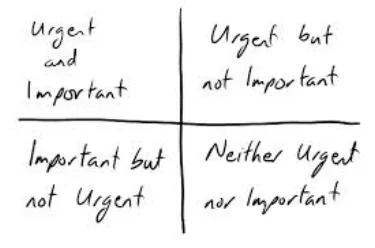 Urgent
and
Important
Urgent but
not Important
Important but
not Urgent
Neither Urgent
nor Important